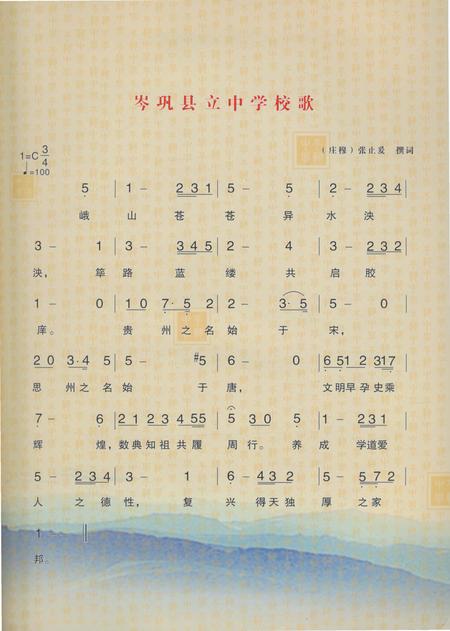 岑巩县立中学校歌
1=C 3/4
♩=100
（庄穆）张止爰 撰词
5 | 1 – 2 3 1 | 5 – 5 | 2 – 2 3 4 |
峨 山 苍 苍 异 水 泱
3 – 1 | 3 – 3 4 5 | 2 – 4 | 3 – 2 3 2 |
泱，筚 路 蓝 缕 共 启 胶
1 – 0 | 1 0 7 · 5 2 | 2 – 3 · 5 | 5 – 0 |
庠。 贵 州 之 名 始 于 宋，
2 0 3 · 4 5 | 5 – #5 | 6 – 0 | 6 5 1 2 3 1 7 |
思 州 之 名 始 于 唐， 文 明 早 孕 史 乘
7 – 6 | 2 1 2 3 4 5 5 | 5 3 0 5 | 1 – 2 3 1 |
辉 煌，数 典 知 祖 共 履 周 行。 养 成 学 道 爱
5 – 2 3 4 | 3 – 1 | 6 – 4 3 2 | 5 – 5 7 2 |
人 之 德 性， 复 兴 得 天 独 厚 之 家
1 ‖
邦。